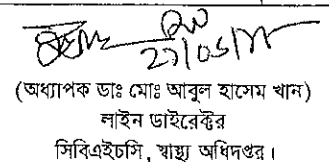 ২৭/০৬/১৮
(অধ্যাপক ডাঃ মোঃ আবুল হাসেম খান)
লাইন ডাইরেক্টর
সিবিএইচসি, স্বাস্থ্য অধিদপ্তর।